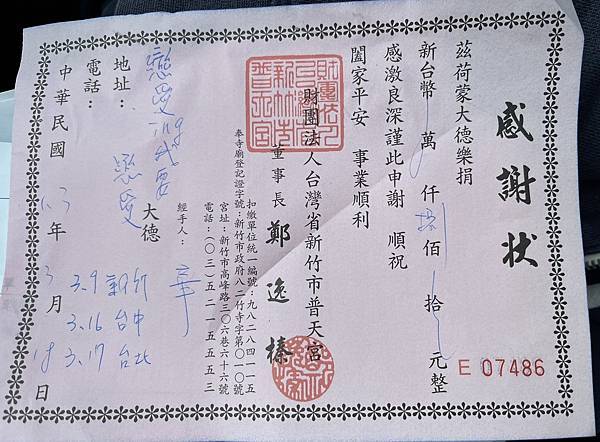 感謝狀
茲荷蒙大德樂捐
新台幣 萬 仟 捌 佰 拾 元整
感激良深謹此申謝 順祝
闔家平安 事業順利
財團法人台灣省新竹市普天宮
董事長 鄭逸榛
扣繳單位統一編號:九八二八四一一五
奉寺廟登記證字號:新竹市政府八二竹寺字第〇一〇號
宮址:新竹市高峰路三〇六巷六十六號
電話:(〇三)五二一五五五三
經手人:
大德
地址:
電話:
中華民國 103 年 3 月 18 日
3.9 新竹
3.16 台中
3.17 台北
E 07486